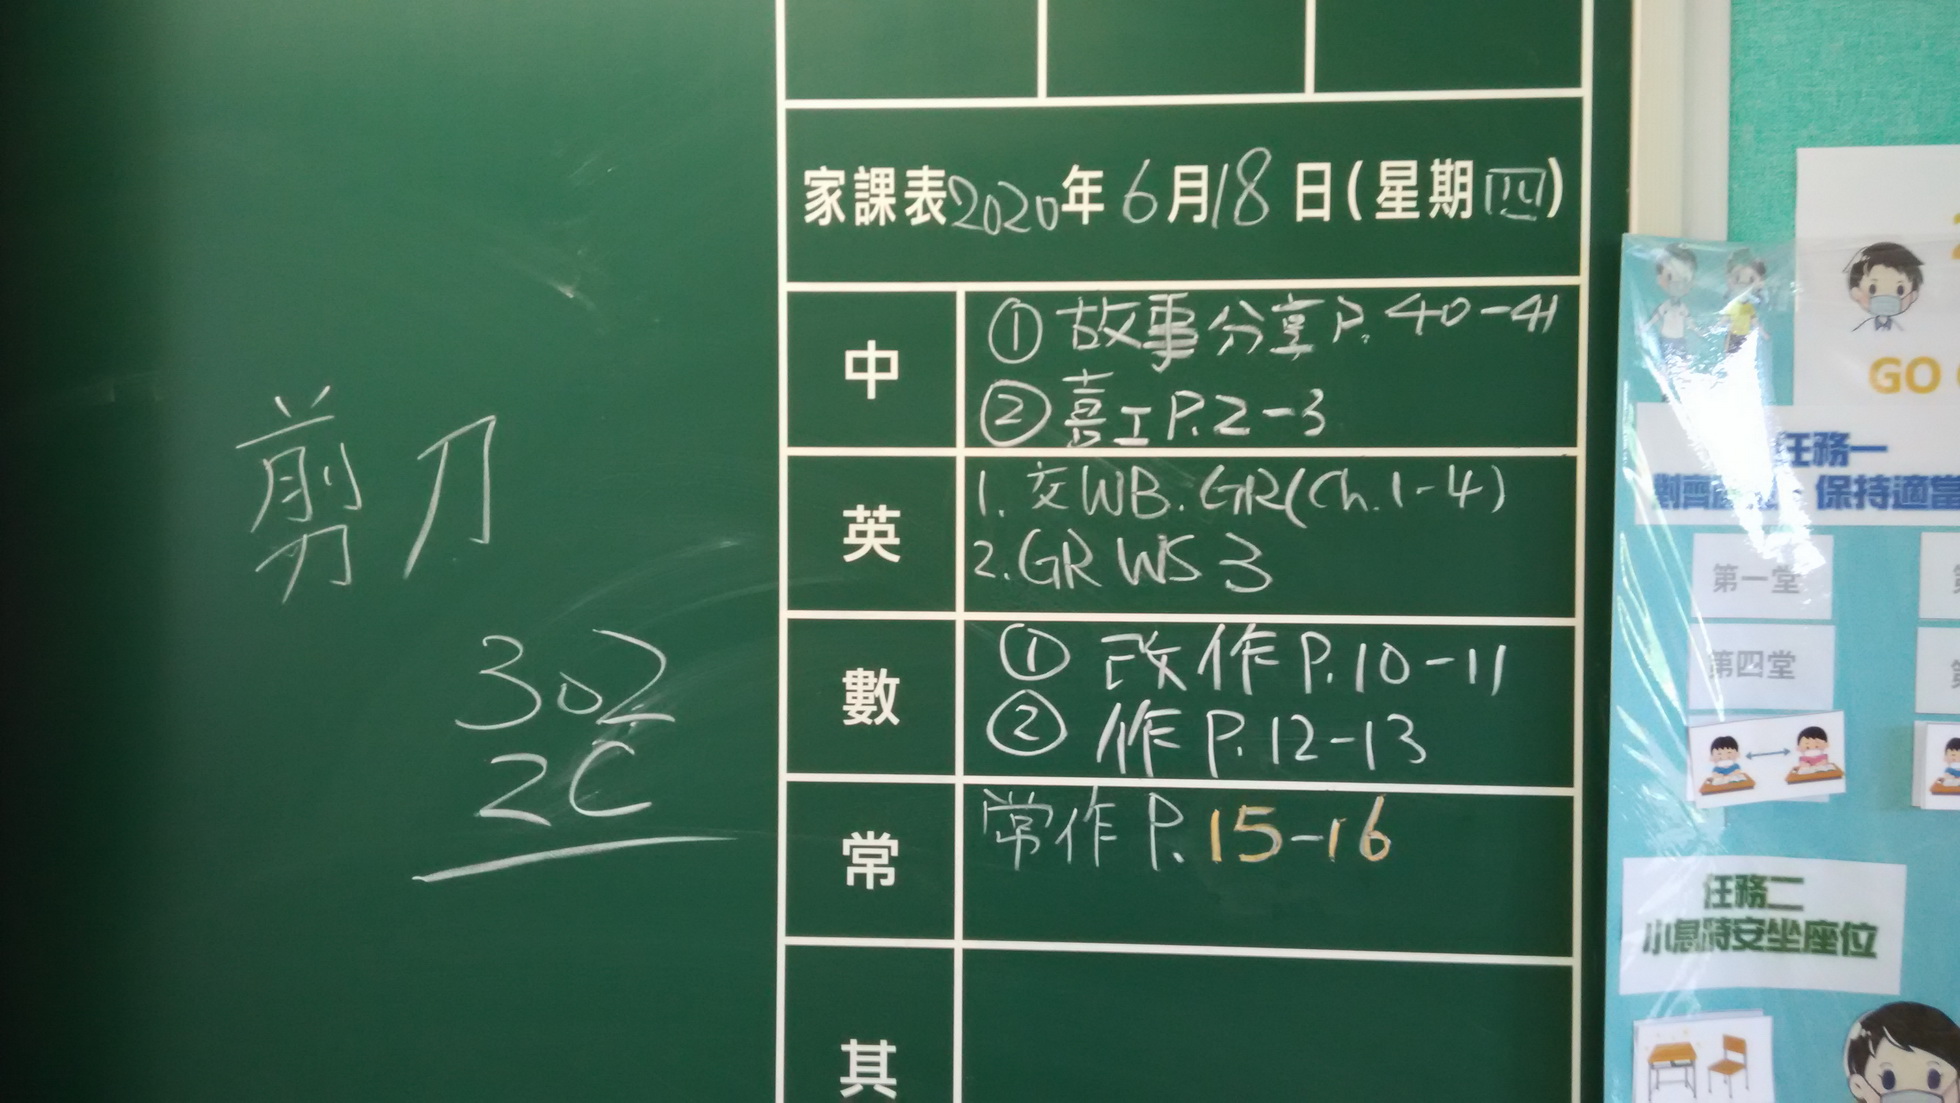 家課表2020年6月18日(星期四)
中
① 故事分享P.40-41
② 喜工P.2-3
英
1. 交WB. GR(Ch.1-4)
2. GR WS 3
數
① 改作P.10-11
② 作P.12-13
常
常作P.15-16
其
剪刀
302
2C
GO
任務一
保持適當
第一堂
第四堂
任務二
小息時安坐座位